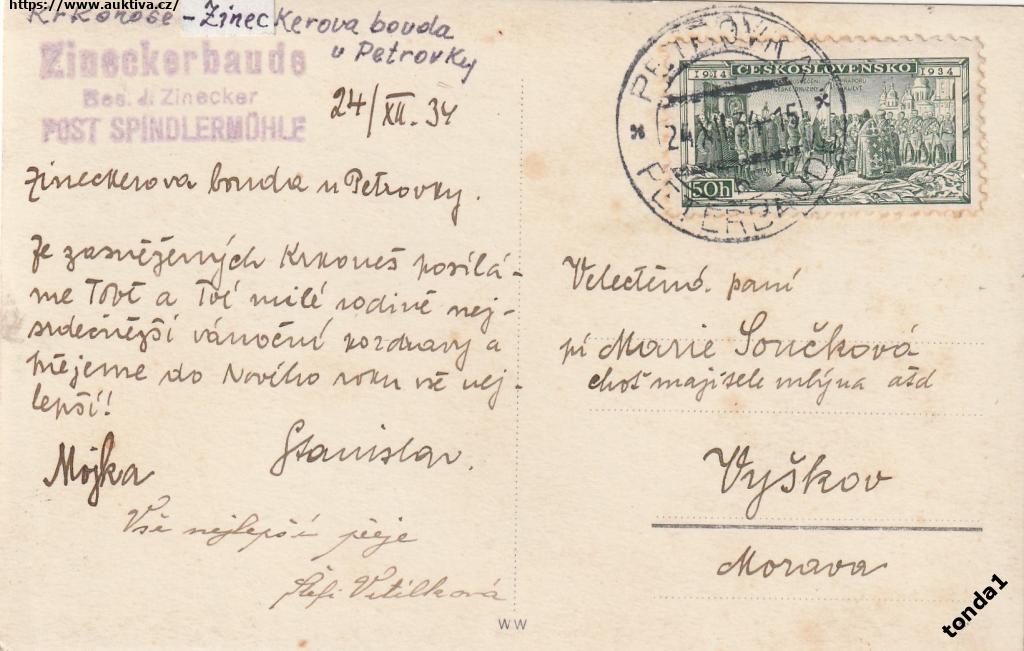 https://www.auktiva.cz/
Krkonoše - Zineckerova bouda
u Petrovky
Zineckerbaude
Bes. J. Zinecker
POST SPINDLERMÜHLE
24/XII. 34
Zineckerova bouda u Petrovky.
Ze zasněžených Krkonoš posílá-
me Tobě a Tvé milé rodině nej-
srdečnější vánoční pozdravy a
přejeme do Nového roku vše nej-
lepší!!
Mojka
Stanislav.
Vše nejlepší přeje
Štefi Vitilková
PETROVKA
24.XII.34-15
PETERBAUDE
1914 ČESKOSLOVENSKO 1934
50h
Velectěná paní
pí Marie Součková
choť majitele mlýna atd
Vyškov
Morava
WW
tonda1